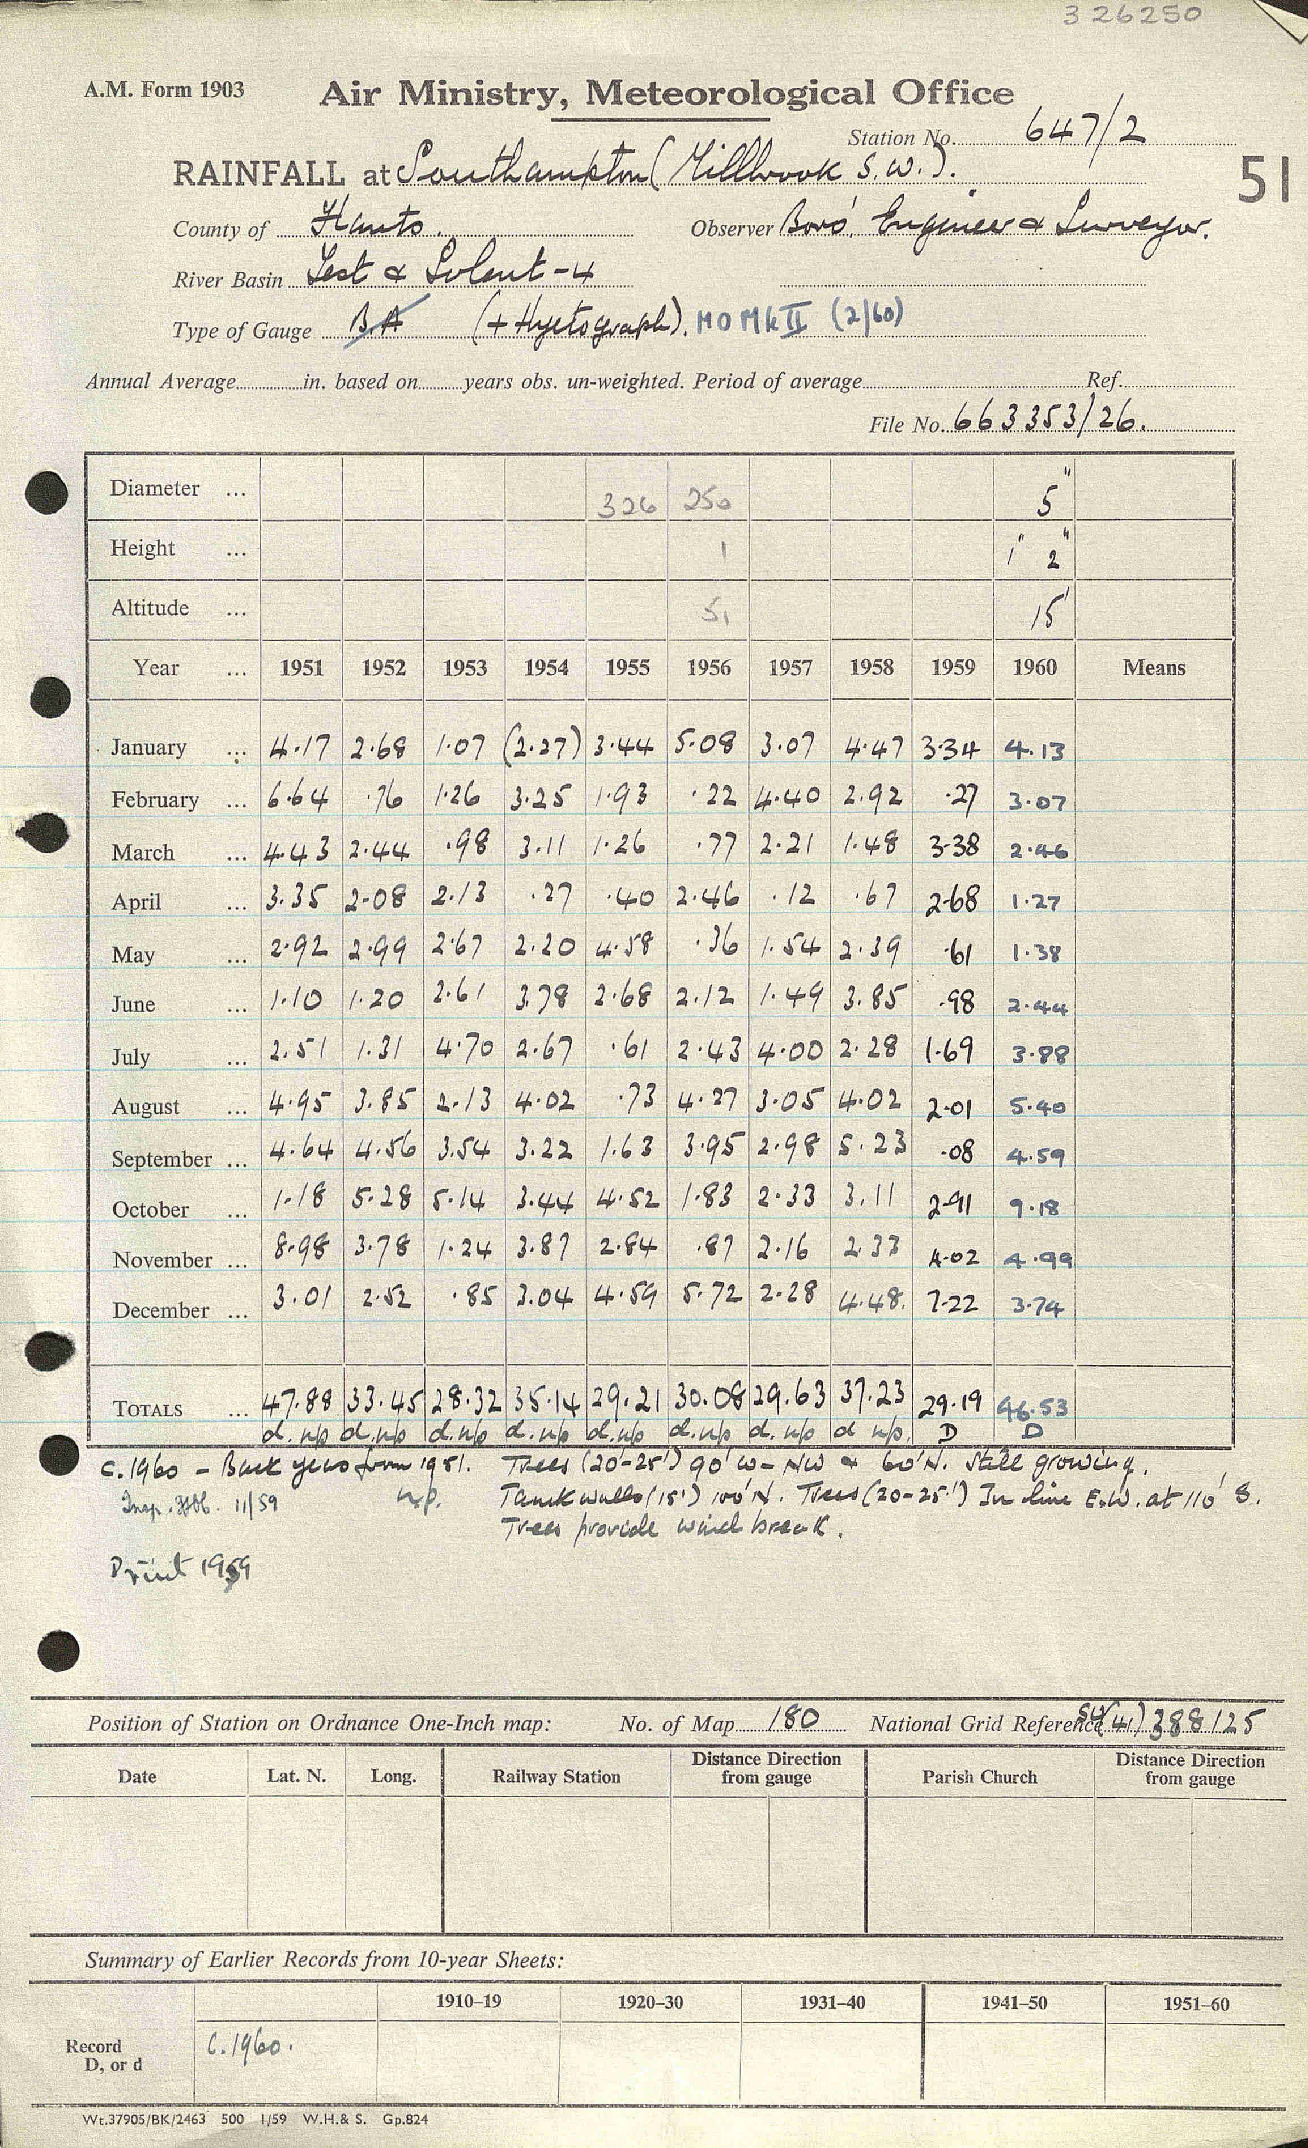 326250
A.M. Form 1903
Air Ministry, Meteorological Office
Station No. 647/2
RAINFALL at Southampton (Millbrook S.W.).
51
County of Hants. Observer Boro' Engineer & Surveyor.
River Basin Test & Solent - 4
Type of Gauge BA (+ Hyetograph). MO MK II (2/60)
Annual Average in. based on years obs. un-weighted. Period of average Ref.
File No. 663353/26.
Diameter ... 326 250 5"
Height ... 1 1' 2"
Altitude ... 51 15'
Year ... 1951 1952 1953 1954 1955 1956 1957 1958 1959 1960 Means
January ... 4.17 2.68 1.07 (2.27) 3.44 5.08 3.07 4.47 3.34 4.13
February ... 6.64 .76 1.26 3.25 1.93 .22 4.40 2.92 .27 3.07
March ... 4.43 2.44 .98 3.11 1.26 .77 2.21 1.48 3.38 2.46
April ... 3.35 2.08 2.13 .27 .40 2.46 .12 .67 2.68 1.27
May ... 2.92 2.99 2.67 2.20 4.58 .36 1.54 2.39 .61 1.38
June ... 1.10 1.20 2.61 3.78 2.68 2.12 1.49 3.85 .98 2.44
July ... 2.51 1.31 4.70 2.67 .61 2.43 4.00 2.28 1.69 3.88
August ... 4.95 3.85 2.13 4.02 .73 4.27 3.05 4.02 2.01 5.40
September ... 4.64 4.56 3.54 3.22 1.63 3.95 2.98 5.23 .08 4.59
October ... 1.18 5.28 5.14 3.44 4.52 1.83 2.33 3.11 2.91 9.18
November ... 8.98 3.78 1.24 3.87 2.84 .87 2.16 2.33 4.02 4.99
December ... 3.01 2.52 .85 3.04 4.59 5.72 2.28 4.48. 7.22 3.74
TOTALS ... 47.88 33.45 28.32 35.14 29.21 30.08 29.63 37.23 29.19 46.53
d.np d.np d.np d.np d.np d.np d.np d np. D D
C.1960 – Back years from 1951. Trees (20-25') 90' W-NW & 60'N. Still growing.
Insp. 11/59 n.p. Tank walls (15') 100'N. Trees (20-25') In line E.W. at 110' S.
Trees provide wind break.
Print 1959
Position of Station on Ordnance One-Inch map: No. of Map 180 National Grid Reference SU(41) 388125
Date Lat. N. Long. Railway Station Distance Direction from gauge Parish Church Distance Direction from gauge
Summary of Earlier Records from 10-year Sheets:
1910–19 1920–30 1931–40 1941–50 1951–60
Record
D, or d C.1960.
Wt.37905/BK/2463 500 1/59 W.H.& S. Gp.824